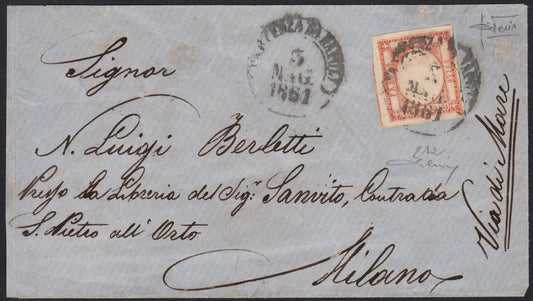 PARTENZA DA NAPOLI
3
MAG.
1861
Signor
N. Luigi Berletti
Presso la Libreria del Sig.r Sanvito, Contrada
S. Pietro all' Orto
Milano
Via di Mare
MAG.
1861